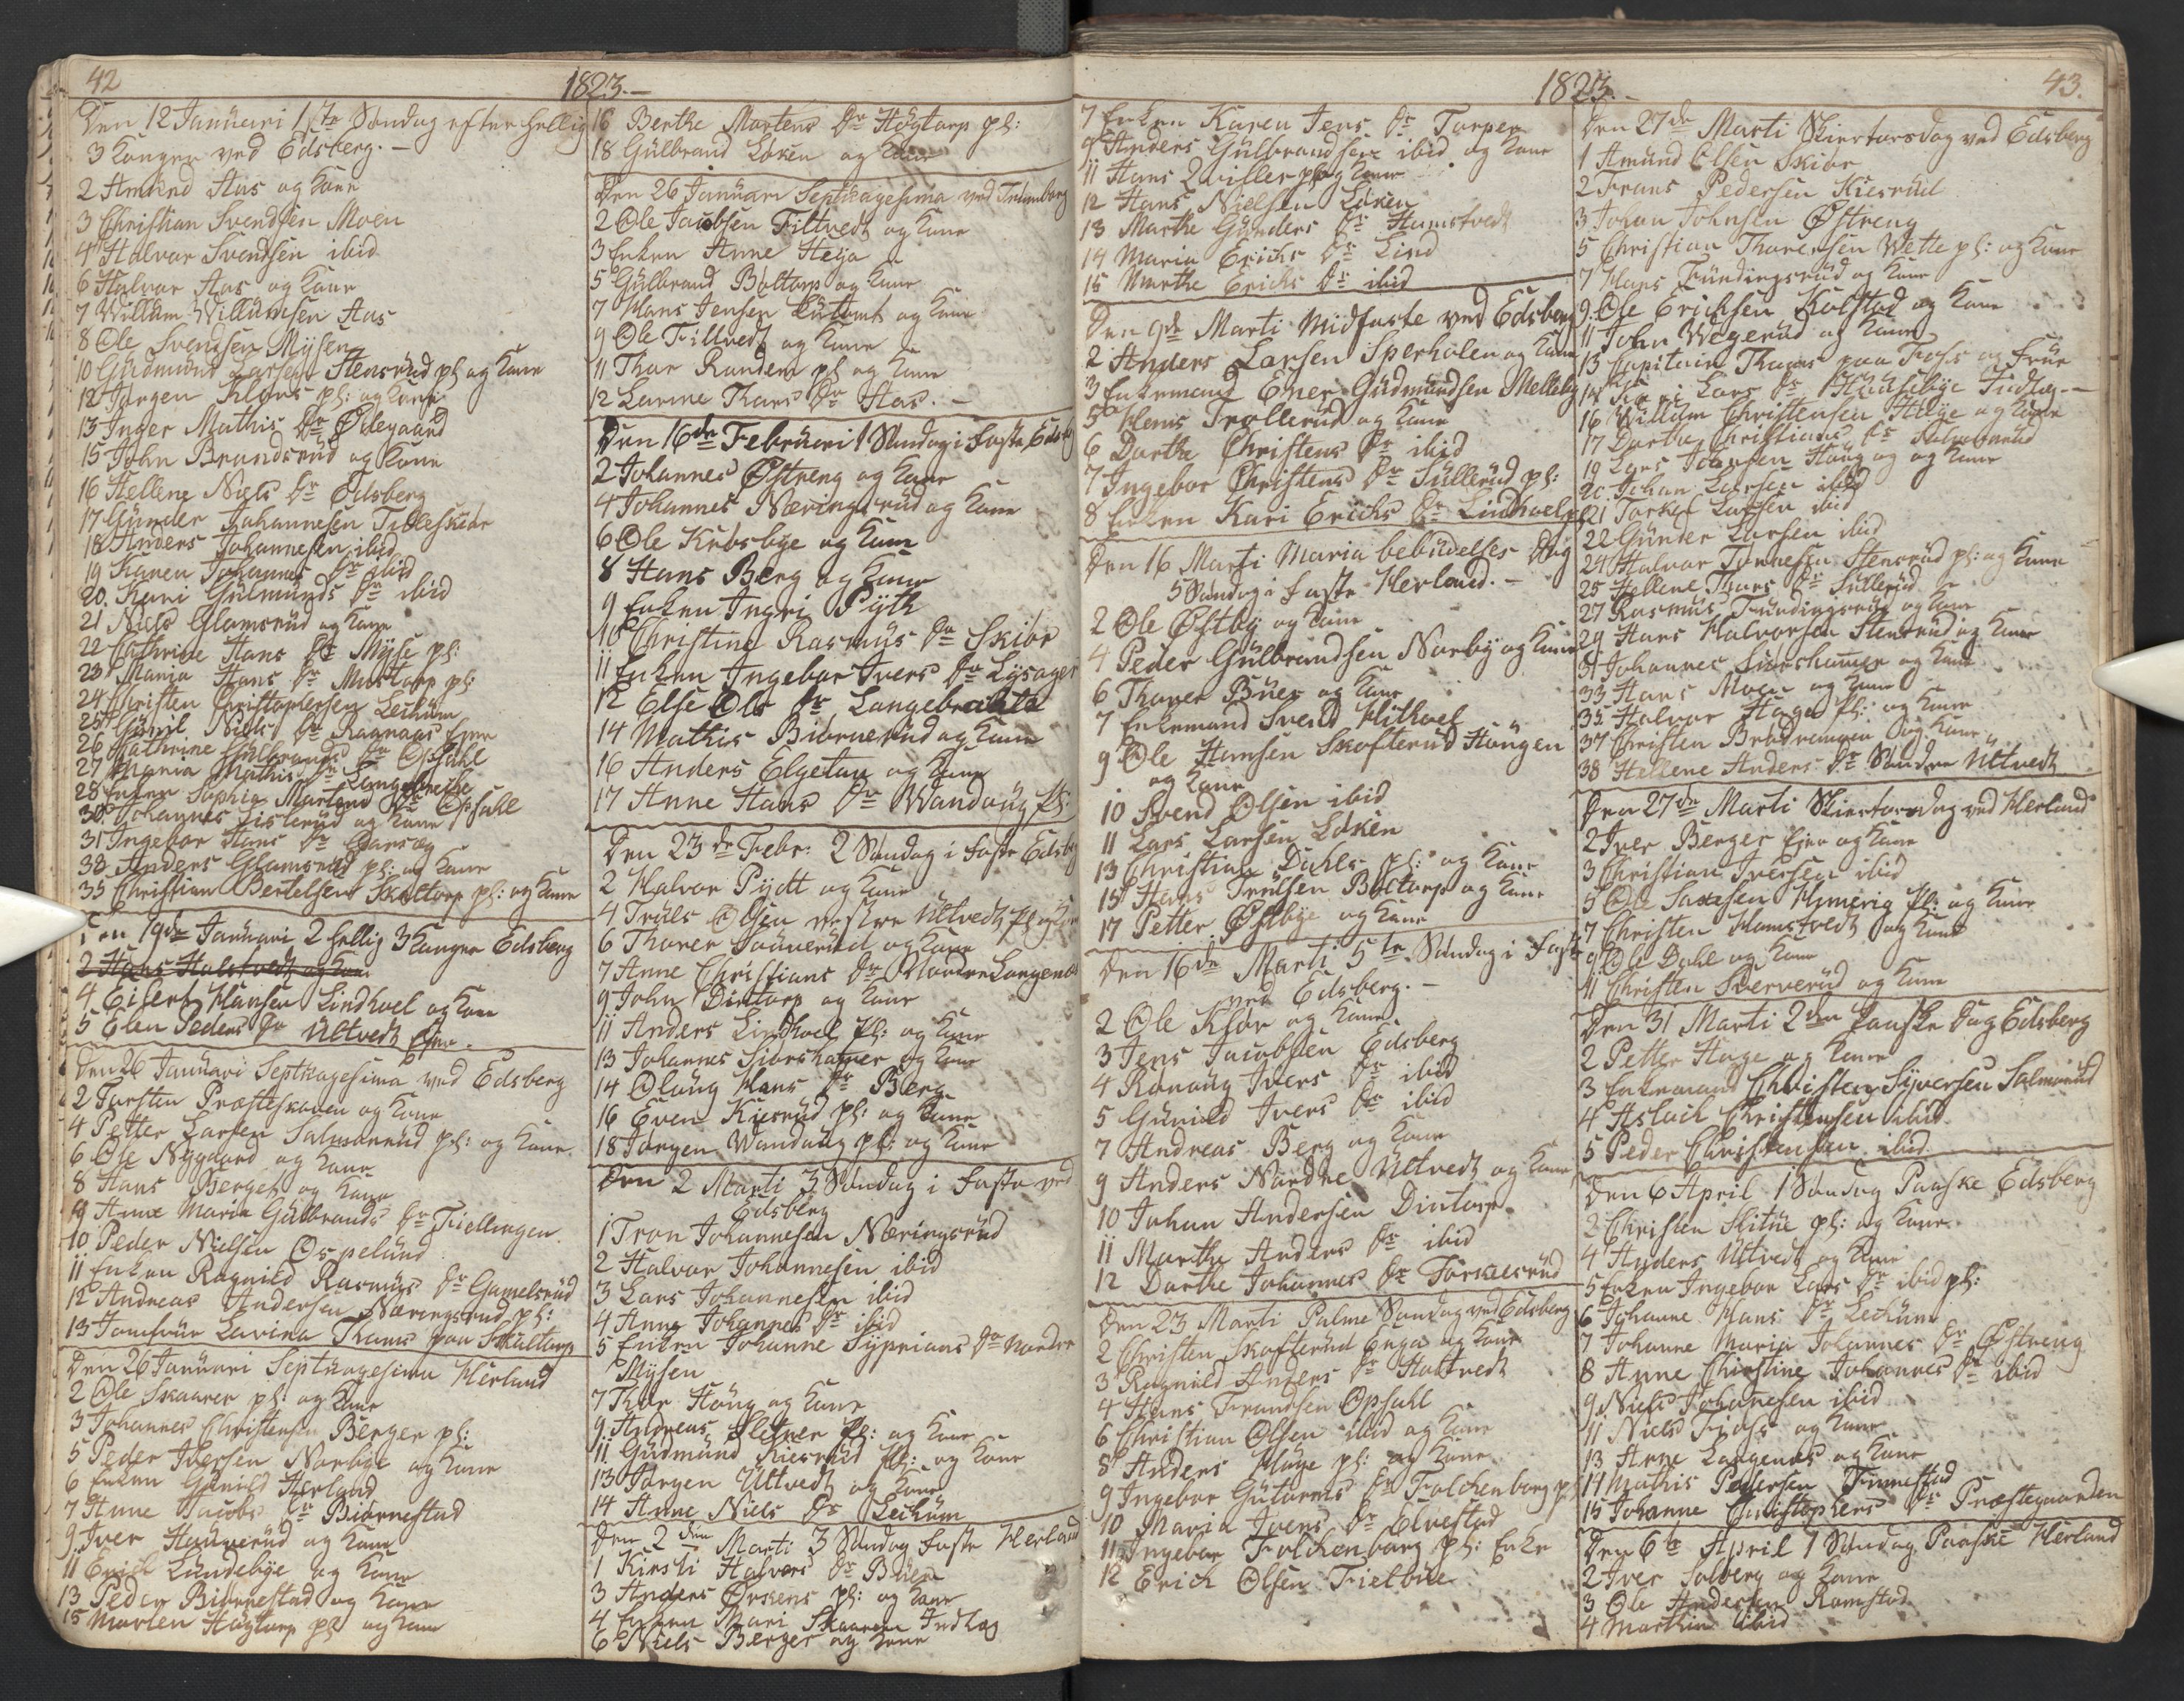 42
1823.-
Den 12 Januari 1ste Søndag efter hellig
3 Konger ved Edsberg.-
2 Amund Aas og Kone
3 Christian Svendsen Moen
4 Halvor Svendsen ibid
6 Halvor Aas og Kone
7 Willum Willumsen Aas
8 Ole Svendsen Mysen
10 Gudmund Larsen Stensrud pl og Kone
12 Jørgen Kløvs pl: og Kone
13 Inger Mathis Dr Ødegaard
15 John Brandsrud og Kone
16 Hellene Niels Dr Edsberg
17 Gunder Johannesen Titleskiør
18 Anders Johannesen ibid
19 Karen Johannes Dr ibid
20. Kari Gulmunds Dr ibid
21 Niels Glamsrud og Kone
22 Cathrine Hans Dr Myse pl:
23 Maria Hans Dr Mustorp pl:
24 Christen Christophersen Lechum
25 Gunil Niels Dr Ragnaas Ejer
26 Cathrine Gulbrands Dr Opsahl
27 Maria Mathis Dr Langebrekke
28 Enken Sophia Martens Dr Opsahl
30. Johannes Lislerud og Kone
31 Ingebor Hans Dr
33 Anders Glamsrud pl: og Kone
35 Christian Bertelsen Skaltorp pl: og Kone
Den 19de Januari 2 hellig 3 Konger Edsberg
2 Hans Halstvedt og Kone
4 Eilert Hansen Lindhoel og Kone
5 Elen Peders Dr Ultvedt Ejer.
Den 26 Januari Septuagesima ved Edsberg
2 Torsten Præsteskoven og Kone
4 Petter Larsen Salmonrud pl: og Kone.
6 Ole Nygaard og Kone
8 Hans Berget og Kone
9 Anne Maria Gulbrands Dr Fiellengen.
10 Peder Nielsen Ospelund
11 Enken Ragnild Rasmus Dr Gamelsrud
12 Andreas Andersen Næringsrud pl:
13 Jomfrue Lavina Thams paa Schaltorp
Den 26 Januari Septuagesima Herland
2 Ole Skaaren pl: og Kone
3 Johannes Christensen Berger pl:
5 Peder Iversen Norbye og Kone
6 Enken Gunild Herland
7 Anne Jacobs Dr Biørnestad
9. Iver Haanerud og Kone
11 Erich Lundebye og Kone
13 Peder Biørnestad og Kone
15 Morten Høgtorp pl og Kone
16 Berthe Mortens Dr Høgtorp pl:
18 Gulbrand Løken og Kone
Den 26 Januari Septuagesima ved Trømborg
2 Ole Jacobsen Tiltvedt og Kone
3 Enken Anne Heya
5 Gulbrand Boltorp og Kone
7 Hans Jensen og Kone
9 Ole Tiltvedt og Kone
11 Thor Randem pl og Kone
12 Lavine Thors Dr Aas.-
Den 16de Februari 1 Søndag i Faste Edsb
2 Johannes Østreng og Kone
4 Johannes Næringsrud og Kone
6 Ole Krosbye og Kone
8 Hans Berg og Kone
9 Enken Ingri Pyth
10 Christine Rasmus Dr Skiør
11 Enken Ingebor Ivers Dr Lysager
12 Else Ols Dr Langebrække
14 Mathis Biørnerud og Kone
16 Anders Elgetun og Kone
17 Anne Hans Dr Wandaug Pl:
Den 23de Febr: 2 Søndag i Faste Edsb
2 Halvor Pydt og Kone
4 Truls Olsen vestre Ultvedt Pl og Kone
6 Thorer Saunerud og Kone
7 Anne Christians Dr Nordre Langenes
9 John Dintorp og Kone
11 Anders Lindhoel Pl: og Kone
13 Johannes Siørshamer og Kone
14 Olaug Hans Dr Berg
16 Even Kiesrud pl: og Kone
18 Jørgen Wandaug pl: og Kone
Den 2 Marti 3 Søndag i Faste ved
Edsberg
1 Tron Johannesen Næringsrud
2 Halvor Johannesen ibid
3 Lars Johannesen ibid
4 Anne Johannes Dr ibid
5 Enken Johanne Syprians Dr Nordre
Mysen
7 Thor Haug og Kone
9. Andreas Sletner Pl: og Kone
11 Gudmund Kiesrud Pl: og Kone
13 Jørgen Ultvedt og Kone
14 Anne Niels Dr Lechum
Den 2den Marti 3 Søndag Faste Herland
1 Kirsti Halvors Dr Buer
3 Anders Ørskens pl: og Kone
4 Enken Mari Skaaren Indlæg
6 Niels Berger og Kone
1823.-
43.
7 Enken Karen Jens Dr Torper
9 Anders Gulbrandsen ibid og Kone
11 Hans Qviller pl og Kone
12 Hans Nielsen Løken
13 Marthe Gunders Dr Hamstvedt
14 Maria Erichs Dr Lind
15 Marthe Erichs Dr ibid
Den 9de Marti Midfaste ved Edsberg
2 Anders Larsen Sperholen og Kone
3 Enkemand Ener Gudmundsen Melleby
5 Hans Trollerud og Kone
6 Dorthe Christens Dr ibid
7 Ingebor Christens Dr Sullerud pl:
8 Enken Kari Erichs Dr Lindhoel pl
Den 16 Marti Maria bebudelses Dag
5 Søndag i Faste Herland.-
2 Ole Østby og Kone
4 Peder Gulbrandsen Norby og Kone
6 Thorer Buer og Kone
7 Enkemand Svend Hithoel
9 Ole Hansen Skofterud Haugen
og Kone
10 Svend Olsen ibid
11 Lars Larsen Løken
13 Christian Dahler pl: og Kone
15 Hans Trulsen Boltorp og Kone
17 Petter Østbye og Kone
Den 16de Marti 5te Søndag i Faste
ved Edsberg.-
2 Ole Kløv og Kone
3 Jens Jacobsen Edsberg
4 Ranaug Ivers Dr ibid
5 Gunild Ivers Dr ibid
7 Andreas Berg og Kone
9 Anders Nordre Ultvedt og Kone
10 Johan Andersen Dintorp
11 Marthe Anders Dr ibid
12 Dorthe Johannes Dr Torkelsrud
Den 23 Marti Palme Søndag ved Edsberg
2 Christen Skofterud Enga og Kone
3 Ragnild Anders Dr Haltvedt
4 Hans Frandsen Opsahl
6 Christian Olsen ibid og Kone
8 Anders Hage pl: og Kone
9 Ingebor Gutorms Dr Folchenborg pl
10 Maria Ivers Dr Elvestad
11 Ingebor Folchenborg pl: Enke
12 Erich Olsen Fielbue
Den 27de Marti Skiertorsdag ved Edsberg
1 Amund Olsen Skiør
2 Frans Pedersen Kiesrud
3 Johan Johnsen Østreng
5 Christian Thoresen Wette pl: og Kone
7 Hans Fundingsrud og Kone
9. Ole Erichsen Kolstad og Kone
11 John Wegerud og Kone
13 Capitain Thams paa Foss og Frue
14 Kari Lars Dr Huusebye Indlæg-
16 Willum Christensen Helje og Kone
17 Dorthe Christians Dr Salmonrud
19 Lars Johnsen Haug og og Kone
20 Johan Larsen ibid
21 Torkel Larsen ibid
22 Gunder Larsen ibid
24 Halvor Tønnesen Stensrud pl: og Kone
25 Hellene Thors Dr Sullerud
27 Rasmus Fundingsrud og Kone
29 Hans Halvorsen Stensrud og Kone
31 Johannes Siørshamer og Kone
33 Hans Moen og Kone
35 Halvor Hage Pl: og Kone
37 Christen Brødremoen og Kone
38 Hellene Anders Dr Søndre Ultvedt
Den 27de Marti Skiertorsdag ved Herland
2 Iver Berger Ejer og Kone
3 Christian Iversen ibid
5 Ole Saxesen Hymerig Pl: og Kone
7 Christen Hamstvedt og Kone
9 Ole Dahl og Kone
11 Christen Sververud og Kone
Den 31 Marti 2den Paaske Dag Edsberg
2 Petter Hage og Kone
3 Enkemand Christen Syversen Salmonrud
4 Aslach Christensen ibid
5 Peder Christensen ibid
Den 6 April 1 Søndag Paaske Edsberg
2 Christen Skitue pl: og Kone.
4 Anders Ultvedt og Kone
5 Enken Ingebor Lars Dr ibid pl:
6 Johanne Hans Dr Lechum
7 Johanne Maria Johannes Dr Østreng
8 Anne Christine Johannes Dr ibid
9. Niels Johanesen ibid
11 Niels Foss og Kone
13 Arne Langenes og Kone
14 Mathis Pedersen Finnestad
15 Johanne Christophers Dr Præstegaarden
Den 6te April 1 Søndag Paaske Herland
2 Iver Solberg og Kone
3 Ole Andersen Ramstad
4 Marthin ibid